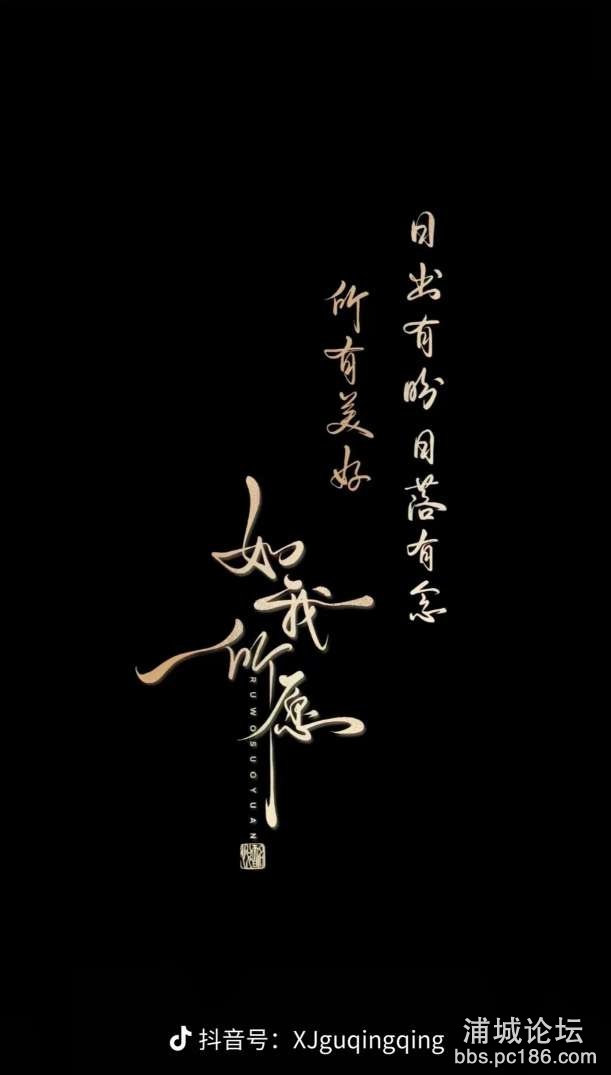 日出有盼日落有念
所有美好
如我所愿
RUWOSUOYUAN
抖音号：XJguqingqing
浦城论坛
bbs.pc186.com